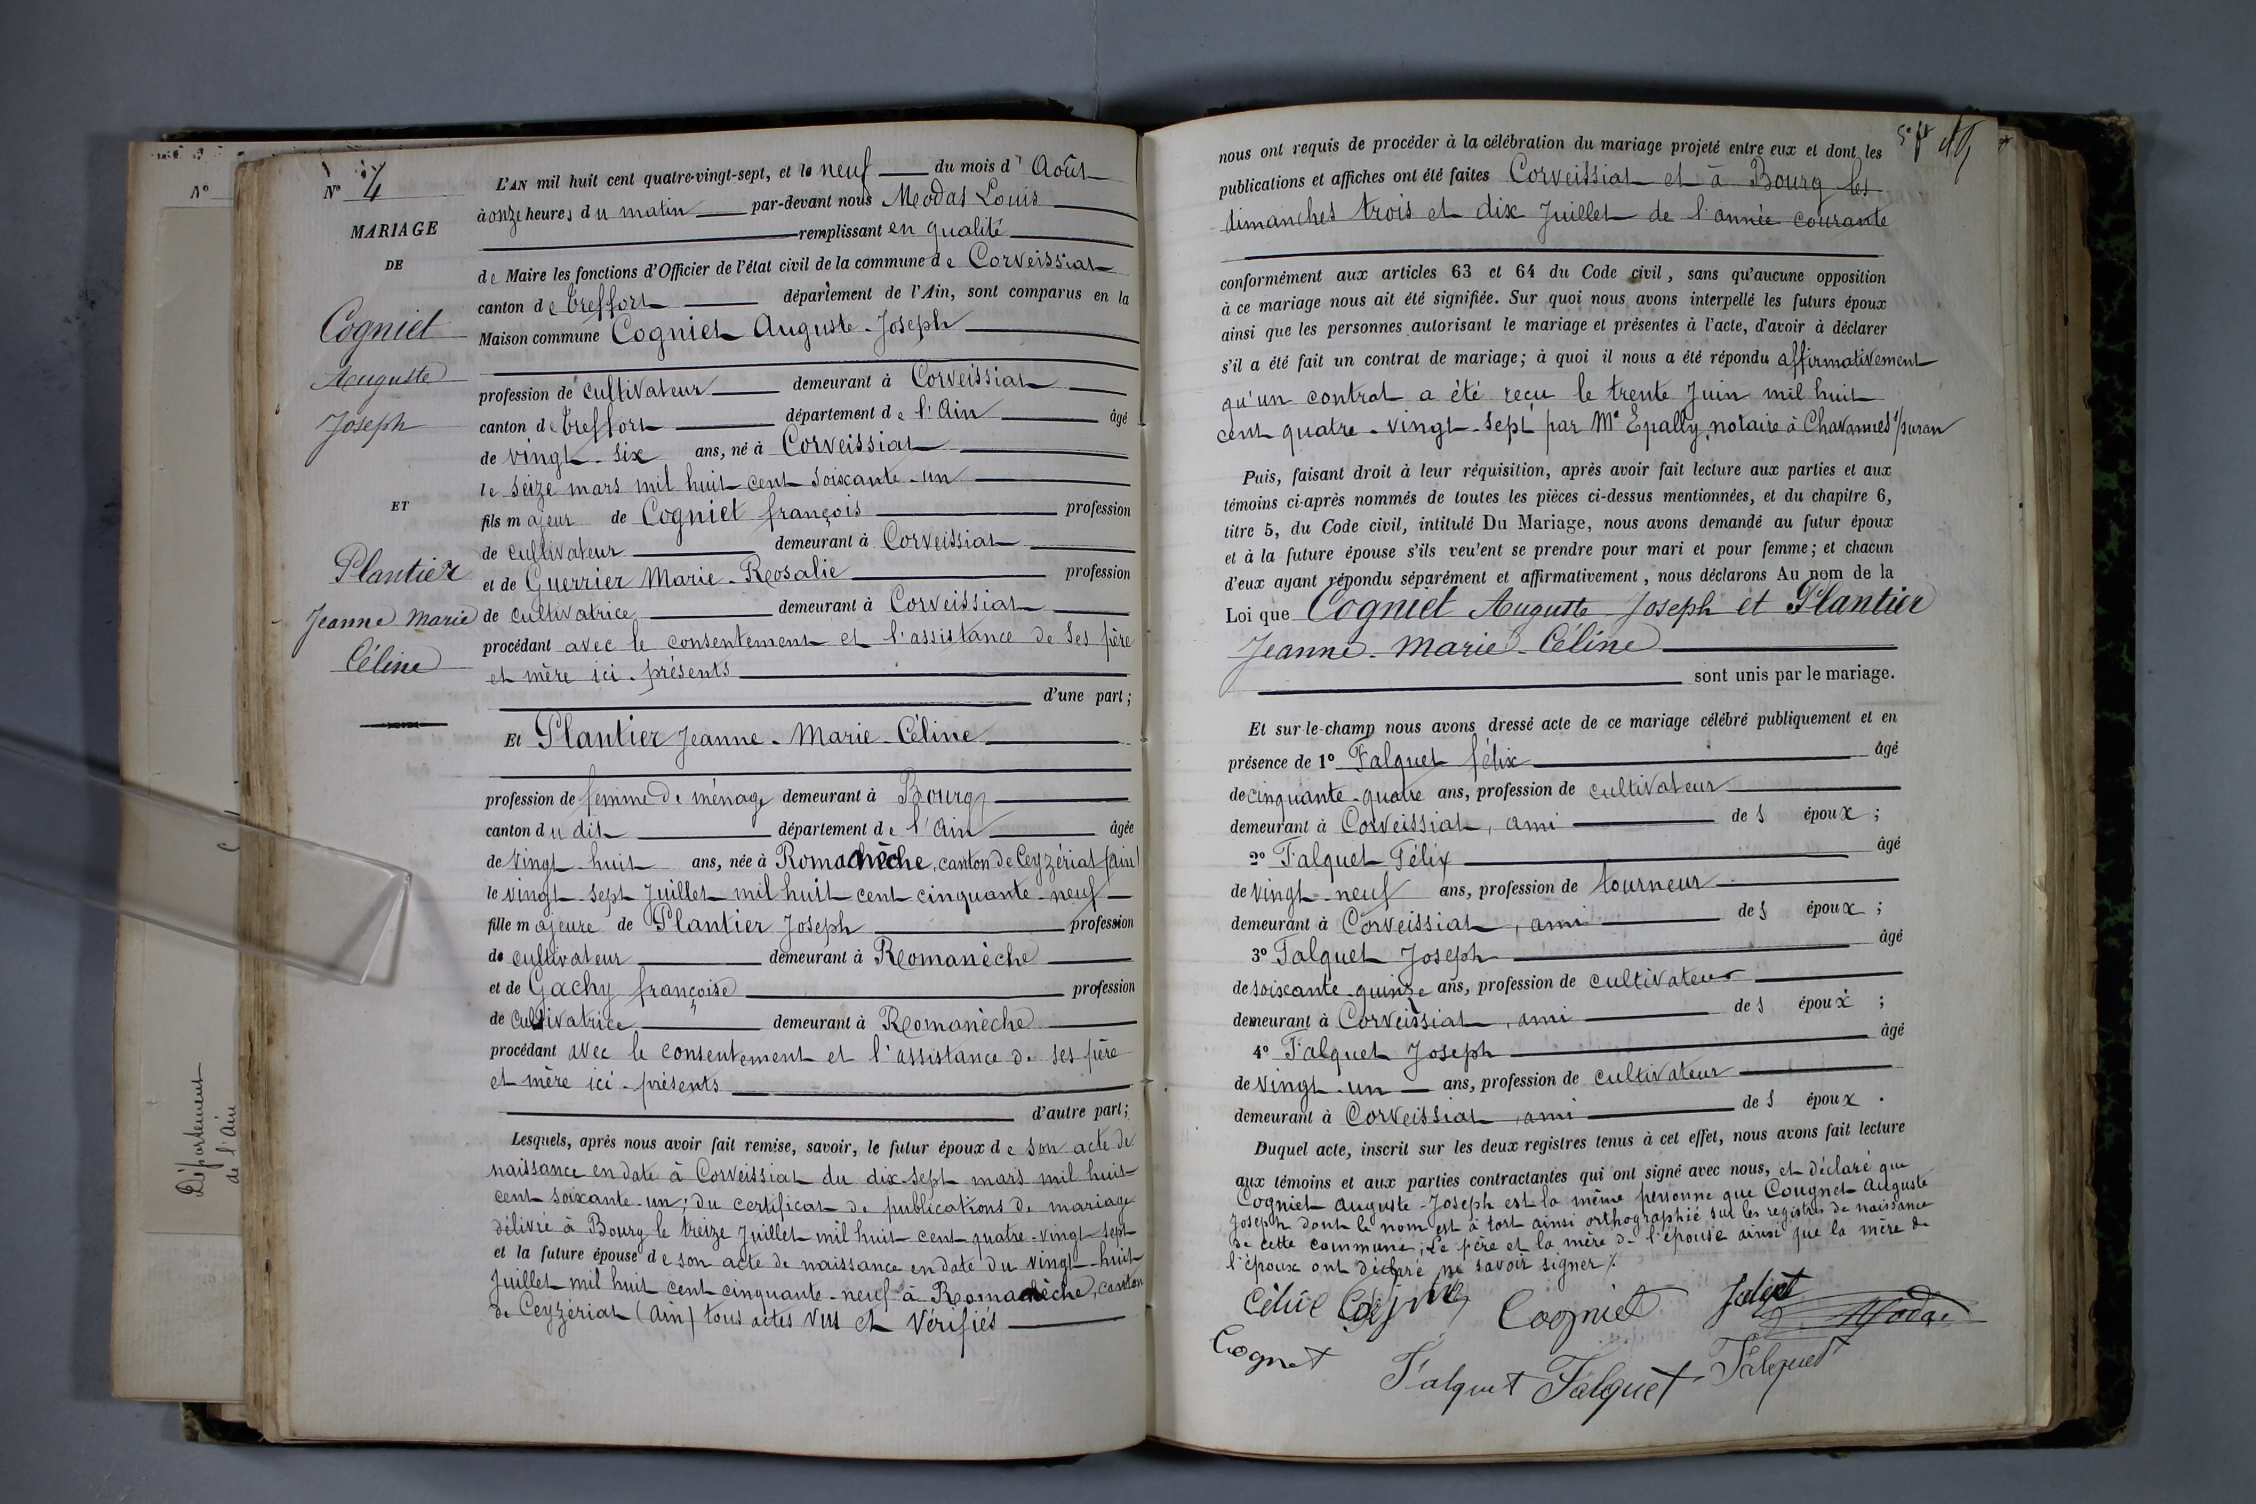 N°
Département
de l'Ain
N° 4
MARIAGE
DE
Cogniet
Auguste
Joseph
ET
Plantier
Jeanne Marie
Céline
L'AN mil huit cent quatre-vingt-sept, et le neuf du mois d'Août
à onze heures du matin par-devant nous Modas Louis
remplissant en qualité
de Maire les fonctions d'Officier de l'état civil de la commune de Corveissiat
canton de Treffort département de l'Ain, sont comparus en la
Maison commune Cogniet Auguste-Joseph
profession de cultivateur demeurant à Corveissiat
canton de Treffort département de l'Ain âgé
de vingt-six ans, né à Corveissiat
le seize mars mil huit cent soixante-un
fils majeur de Cogniet françois profession
de cultivateur demeurant à Corveissiat
et de Guerrier Marie-Rosalie profession
de cultivatrice demeurant à Corveissiat
procédant avec le consentement et l'assistance de ses père
et mère ici-présents
d'une part;
Et Plantier Jeanne-Marie-Céline
profession de femme de ménage demeurant à Bourg
canton du dit département de l'Ain âgée
de vingt-huit ans, née à Romanèche, canton de Ceyzériat (Ain)
le vingt-sept Juillet mil huit cent cinquante-neuf
fille majeure de Plantier Joseph profession
de cultivateur demeurant à Romanèche
et de Gachy françoise profession
de cultivatrice demeurant à Romanèche
procédant avec le consentement et l'assistance de ses père
et mère ici-présents
d'autre part;
Lesquels, après nous avoir fait remise, savoir, le futur époux de son acte de
naissance en date à Corveissiat du dix-sept mars mil huit
cent soixante-un; du certificat de publications de mariage
délivré à Bourg le treize Juillet mil huit cent quatre-vingt sept
et la future épouse de son acte de naissance en date du vingt-huit
Juillet mil huit cent cinquante-neuf à Romanèche, canton
de Ceyzériat (Ain) tous actes vus et vérifiés
nous ont requis de procéder à la célébration du mariage projeté entre eux et dont les
publications et affiches ont été faites Corveissiat et à Bourg les
dimanches trois et dix Juillet de l'année courante
conformément aux articles 63 et 64 du Code civil, sans qu'aucune opposition
à ce mariage nous ait été signifiée. Sur quoi nous avons interpellé les futurs époux
ainsi que les personnes autorisant le mariage et présentes à l'acte, d'avoir à déclarer
s'il a été fait un contrat de mariage; à quoi il nous a été répondu affirmativement
qu'un contrat a été reçu le trente Juin mil huit
cent quatre-vingt-sept par Me Epally, notaire à Chavannes s/suran
Puis, faisant droit à leur réquisition, après avoir fait lecture aux parties et aux
témoins ci-après nommés de toutes les pièces ci-dessus mentionnées, et du chapitre 6,
titre 5, du Code civil, intitulé Du Mariage, nous avons demandé au futur époux
et à la future épouse s'ils veu'ent se prendre pour mari et pour femme; et chacun
d'eux ayant répondu séparément et affirmativement, nous déclarons Au nom de la
Loi que Cogniet Auguste-Joseph et Plantier
Jeanne-Marie-Céline
sont unis par le mariage.
Et sur-le-champ nous avons dressé acte de ce mariage célébré publiquement et en
présence de 1° Falquet félix âgé
de cinquante-quatre ans, profession de cultivateur
demeurant à Corveissiat, ami des époux;
2° Falquet Félix âgé
de vingt-neuf ans, profession de tourneur
demeurant à Corveissiat, ami des époux;
3° Falquet Joseph âgé
de soixante-quinze ans, profession de cultivateur
demeurant à Corveissiat, ami des époux;
4° Falquet Joseph âgé
de vingt-un ans, profession de cultivateur
demeurant à Corveissiat, ami des époux.
Duquel acte, inscrit sur les deux registres tenus à cet effet, nous avons fait lecture
aux témoins et aux parties contractantes qui ont signé avec nous, et déclaré que
Cogniet Auguste-Joseph est la même personne que Cougnet Auguste
Joseph dont le nom est à tort ainsi orthographié sur les registres de naissance
de cette commune; Le père et la mère de l'épouse ainsi que la mère de
l'époux ont déclaré ne savoir signer.
Cogniet
Cognet Falquet Falquet Falquet